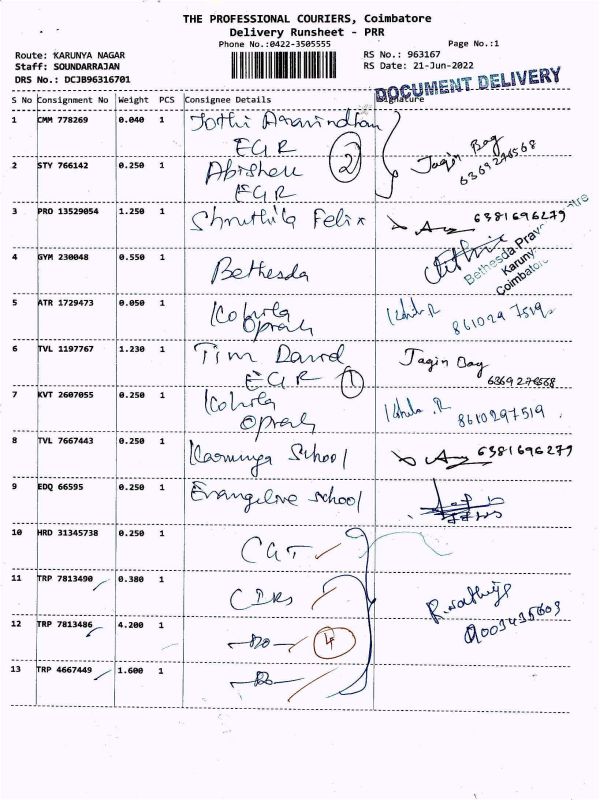 THE PROFESSIONAL COURIERS, Coimbatore
Delivery Runsheet - PRR
Phone No.:0422-3505555
Page No.:1
Route: KARUNYA NAGAR
RS No.: 963167
Staff: SOUNDARRAJAN
RS Date: 21-Jun-2022
DRS No.: DCJB96316701
DOCUMENT DELIVERY
S No Consignment No Weight PCS Consignee Details Signature
1 CMM 778269 0.040 1 Jothi Aravindhan
EGR
2
Jagin Bag
6369276568
2 STY 766142 0.250 1 Abishek
EGR
3 PRO 13529054 1.250 1 Shruthila Felix 6381696279
4 GYM 230048 0.550 1 Bethesda
Bethesda
Karuny
Coimbatore
5 ATR 1729473 0.050 1 Kohila 8610297519
6 TVL 1197767 1.230 1 Tim David Jagin Bag
EGR 1 6369276568
7 KVT 2607055 0.250 1 Kohila 8610297519
8 TVL 7667443 0.250 1 Karunya School 6381696279
9 EDQ 66595 0.250 1 Evangeline School
10 HRD 31345738 0.250 1
11 TRP 7813490 0.380 1
12 TRP 7813486 4.200 1 -do- 4
13 TRP 4667449 1.600 1 -do-